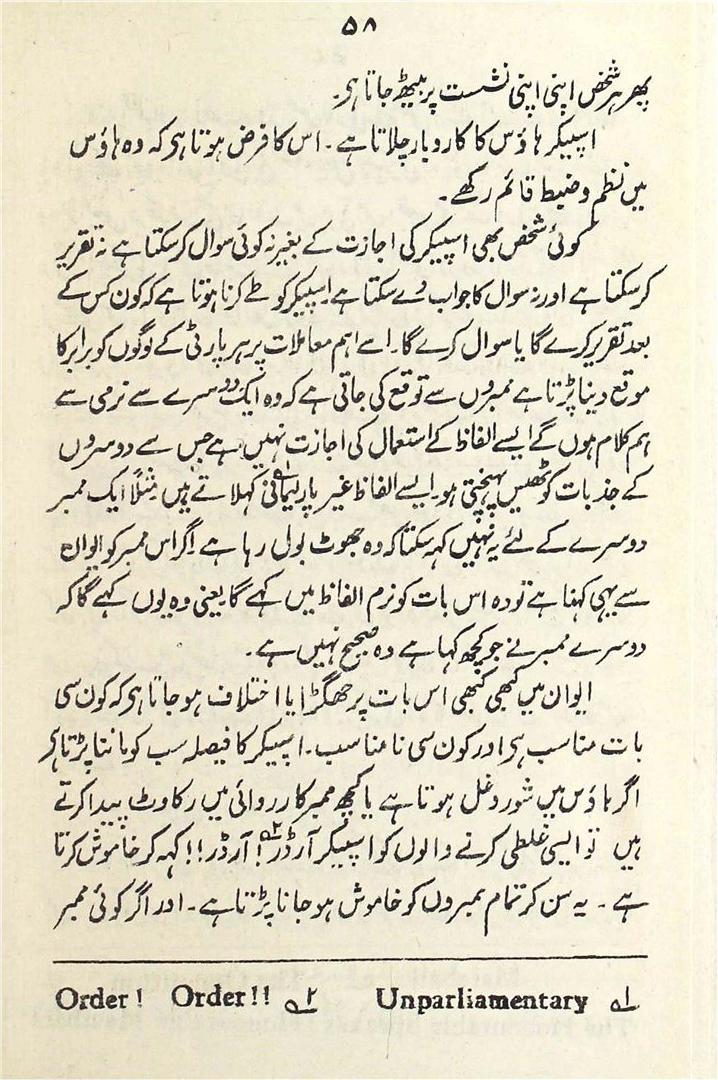 ۵۸
پھر ہر شخص اپنی اپنی نشست پر بیٹھ جاتا ہی۔
اسپیکر ہاؤس کا کاروبار چلاتا ہے۔ اس کا فرض ہوتا ہی کہ وہ ہاؤس
میں نظم و ضبط قائم رکھے۔
کوئی شخص بھی اسپیکر کی اجازت کے بغیر نہ کوئی سوال کر سکتا ہے نہ تقریر
کر سکتا ہے اور نہ سوال کا جواب دے سکتا ہے۔ اسپیکر کو طے کرنا ہوتا ہے کہ کون کس کے
بعد تقریر کرے گا یا سوال کرے گا۔ اسے اہم معاملات پر ہر پارٹی کے لوگوں کو برابر کا
موقع دینا پڑتا ہے ممبروں سے توقع کی جاتی ہے کہ وہ ایک دوسرے سے نرمی سے
ہم کلام ہوں گے ایسے الفاظ کے استعمال کی اجازت نہیں ہے جس سے دوسروں
کے جذبات کو ٹھیس پہنچتی ہو۔ ایسے الفاظ غیر پارلیمانی۱؎ کہلاتے ہیں مثلاً ایک ممبر
دوسرے کے لئے یہ نہیں کہہ سکتا کہ وہ جھوٹ بول رہا ہے۔ اگر اس ممبر کو ایوان
سے یہی کہنا ہے تو وہ اس بات کو نرم الفاظ میں کہے گا یعنی وہ یوں کہے گا کہ
دوسرے ممبر نے جو کچھ کہا ہے وہ صحیح نہیں ہے۔
ایوان میں کبھی کبھی اس بات پر جھگڑا یا اختلاف ہو جاتا ہی کہ کون سی
بات مناسب ہی اور کون سی نامناسب۔ اسپیکر کا فیصلہ سب کو ماننا پڑتا ہی
اگر ہاؤس میں شور و غل ہوتا ہے یا کچھ ممبر کارروائی میں رکاوٹ پیدا کرتے
ہیں تو ایسی غلطی کرنے والوں کو اسپیکر آرڈر۲؎! آرڈر!! کہہ کر خاموش کرتا
ہے۔ یہ سن کر تمام ممبروں کو خاموش ہو جانا پڑتا ہے۔ اور اگر کوئی ممبر
۱؎ Unparliamentary ۲؎ Order! Order!!